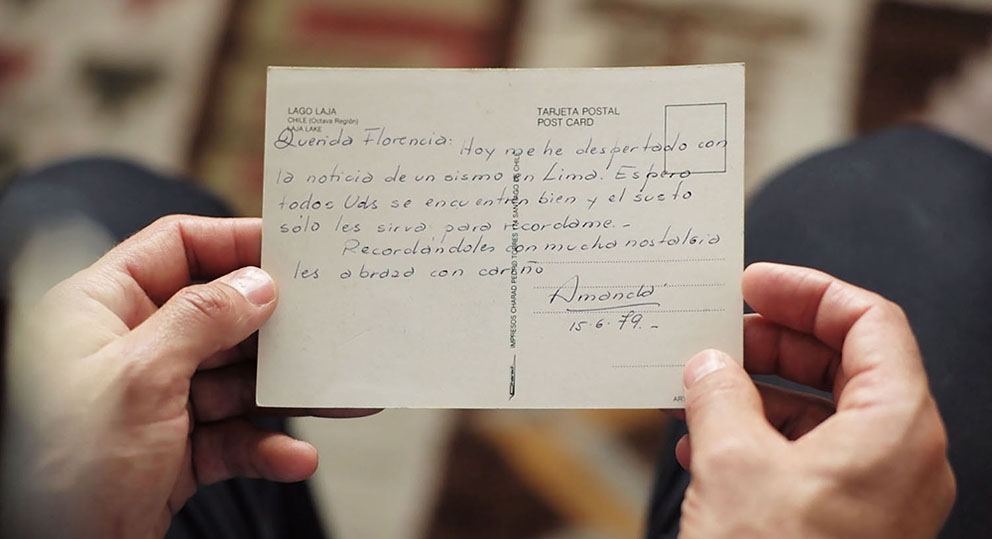 LAGO LAJA
CHILE (Octava Región)
LAJA LAKE
TARJETA POSTAL
POST CARD
Querida Florencia: Hoy me he despertado con
la noticia de un sismo en Lima! Espero
todos Uds se encuentren bien y el susto
sólo les sirva para recordame.-
Recordándoles con mucha nostalgia
les abraza con cariño
Amanda
15-6-79.-
IMPRESOS CHARAD PEDRO TORRES SANTIAGO DE CHILE